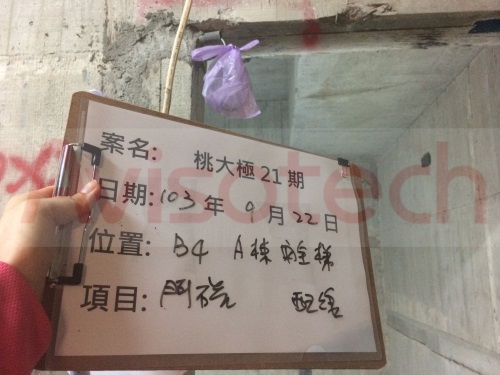 案名: 桃大極21期
日期: 103年9月22日
位置: B4 A棟 安全梯
項目: 門磁 配線
wisotech